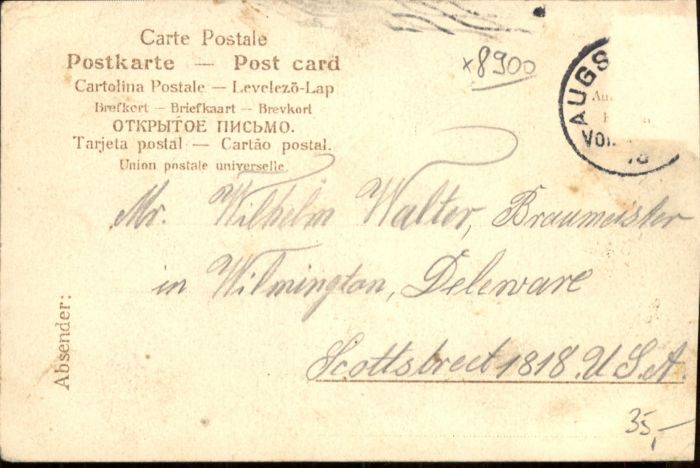 Carte Postale
Postkarte — Post card
Cartolina Postale — Levelező-Lap
Brefkort — Briefkaart — Brevkort
ОТКРЫТОЕ ПИСЬМО.
Tarjeta postal — Cartão postal.
Union postale universelle.
x8900
AUGS
Au
VOR
Mr. Wilhelm Walter, Braumeister
in Wilmington, Deleware
Scottstreet 1818. U.S.A.
Absender:
35,-